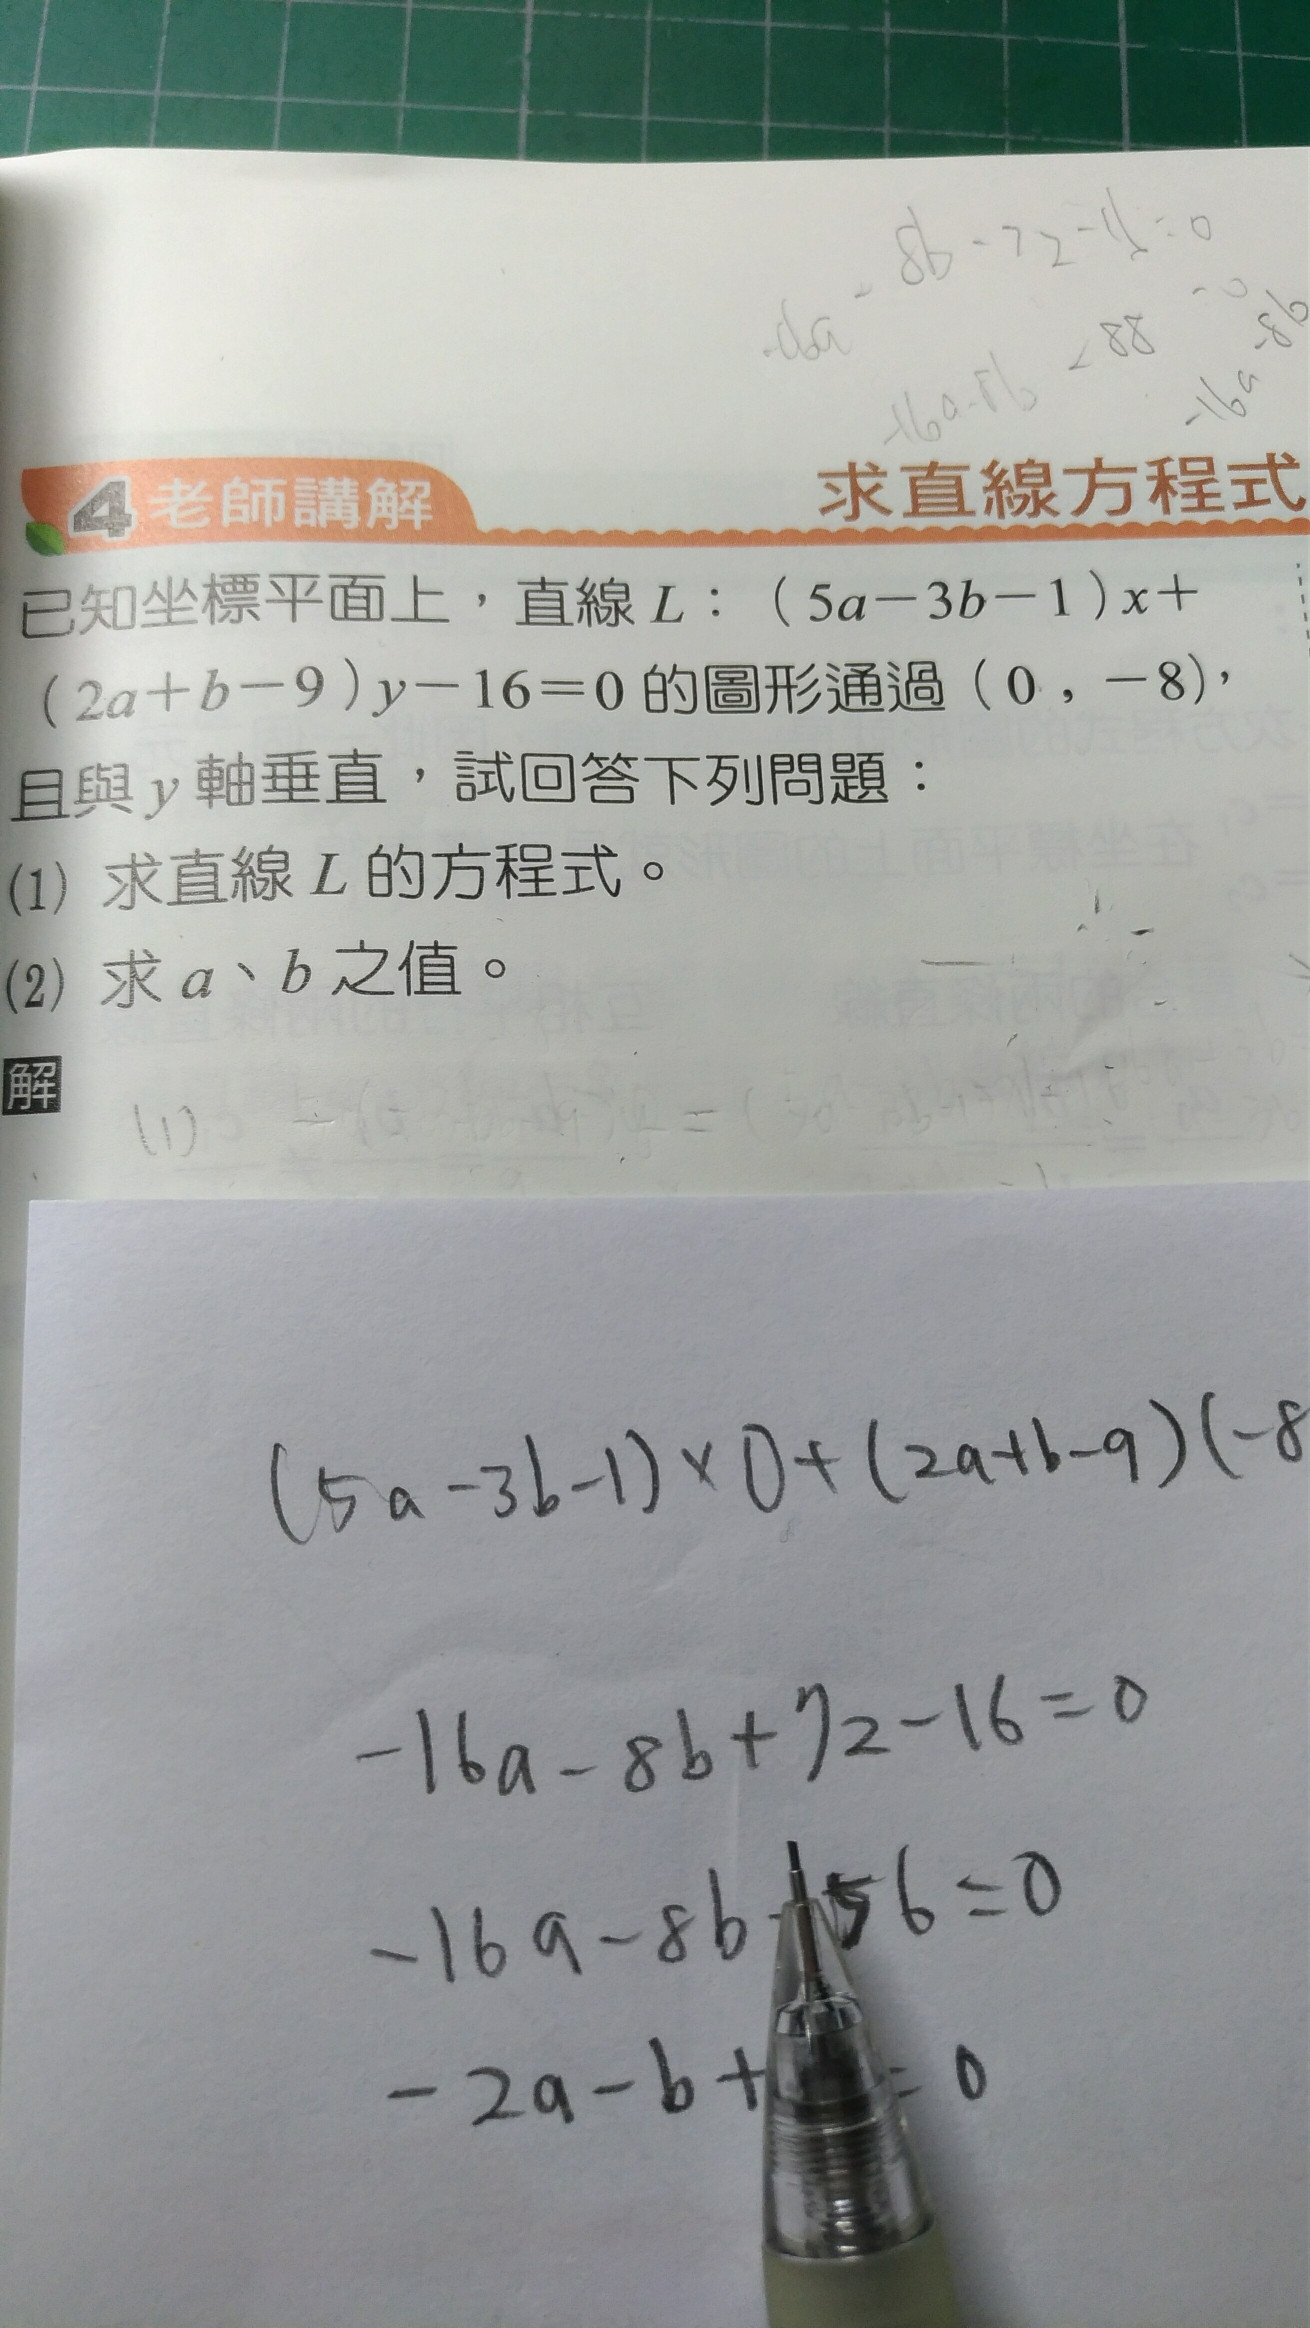 4 老師講解
求直線方程式
已知坐標平面上，直線 L：（5a－3b－1）x＋
（2a＋b－9）y－16＝0 的圖形通過（0，－8），
且與 y 軸垂直，試回答下列問題：
(1) 求直線 L 的方程式。
(2) 求 a、b 之值。
解
(5a-3b-1)×0+(2a+b-9)(-8
-16a-8b+72-16=0
-16a-8b 56=0
-2a-b+ =0